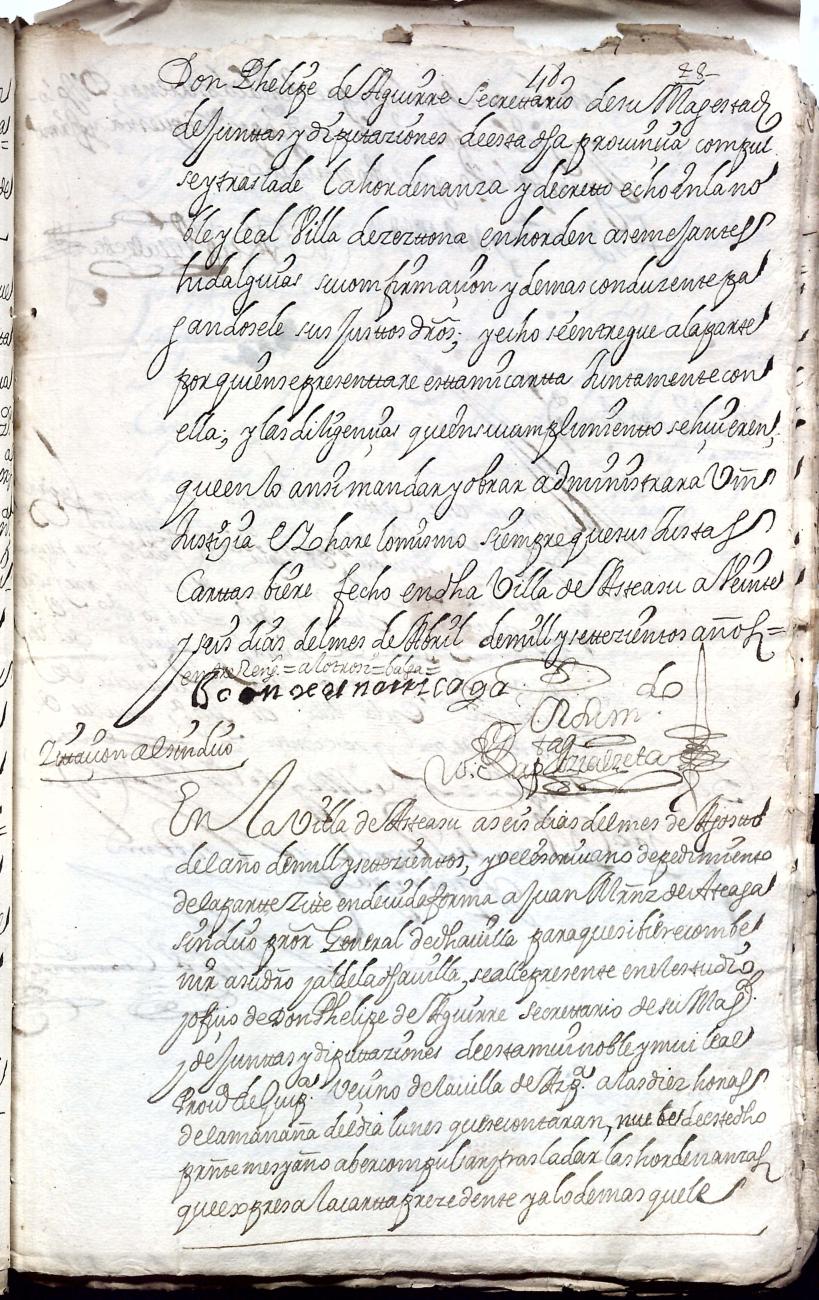 48 28
Don Phelipe de Aguirre Secrettario de su Magestad
de Junttas y diputtaziones de esta dha prouinçia compul
se y traslade la hordenanza y decretto echo en la no
ble y leal Villa de zeztona en horden a semejantes
hidalguias su comfirmaçion y demas conduzente pa
gandosele sus Justtos dros; y echo se entregue a la parte
por quien se presenttare estta mi cartta Junttamente con
ella; y las diligençias que en su cumplimientto se hiuieren;
que en lo ansi mandar y obrar administrara Vm
Justiçia E Yo hare lo mismo siempre que sus Justas
Carttas biere fecho en dha Villa de Asteasu a Veinte
y seis dias del mes de Abril de mill y settezienttos años=
Por su m.
Zittaçion al sindico
En la Villa de Asteasu a seis dias del mes de Agosto
del año de mill y settezienttos, yo el escriuano de pedimiento
de la partte Zitte en deuida forma a Juan Mrnz de Atteaga
sindico pror General de dha uilla para que si biere combe
nir a su dro y al de la dha uilla, se alle presente en el estudio
y ofiçio de Don Phelipe de Aguirre secrettario de su Magd.
y de Junttas y diputtaziones de esta mui noble y mui leal
Prouª de Guipª. Veçino de la uilla de Azpª. a las diez horas
de la mañana del dia lunes que se contaran, nuebe de este dho
pressnte mes y año a ber compulsar y trasladar las hordenanzas
que expresa la cartta prezedente y a lo demas que le